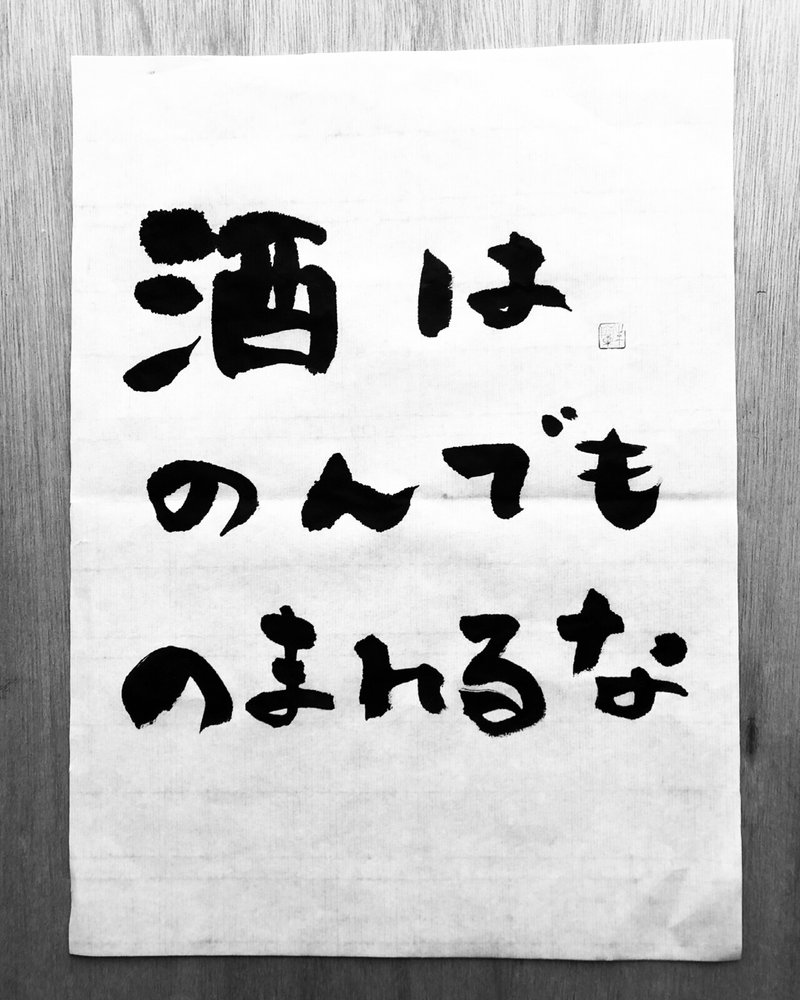 酒は
のんでも
のまれるな